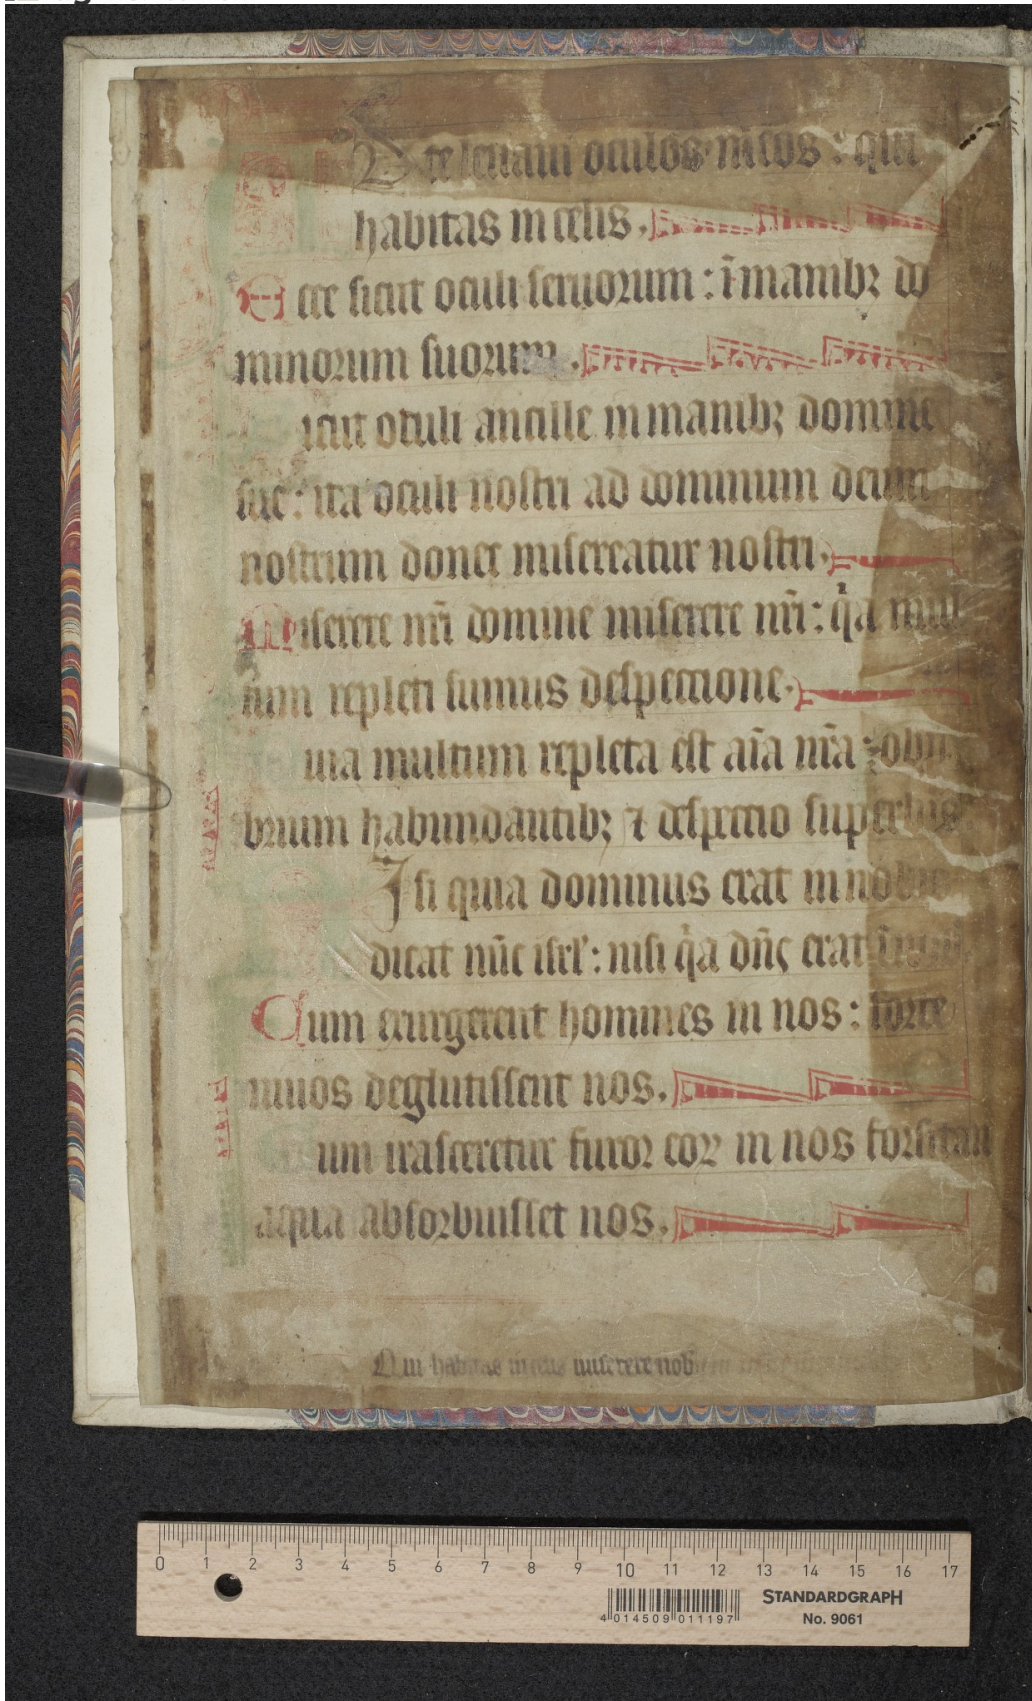 AD te leuaui oculos meos : qui
habitas in celis .
Ecce sicut oculi seruorum : ī manibꝫ do
minorum suorum .
icut oculi ancille in manibꝫ domine
sue : ita oculi nostri ad dominum deum
nostrum donec misereatur nostri .
Miserere nr̄i domine miserere nr̄i : qͥa mul
tum repleti sumus despeccione .
uia multum repleta est aīa nr̄a : obpro
brium habundantibꝫ ⁊ despectio superbis
Isi quia dominus erat in nobis
dicat nūc isrl' : nisi qͥa dn̄s erat in nob
Cum exurgerent homines in nos : forte
uiuos deglutissent nos .
um irasceretur furor eoꝝ in nos forsitan
aqua absorbuisset nos .
Qui habitas in celis miserere nob
0 1 2 3 4 5 6 7 8 9 10 11 12 13 14 15 16 17
STANDARDGRAPH
No. 9061
4 014509 011197